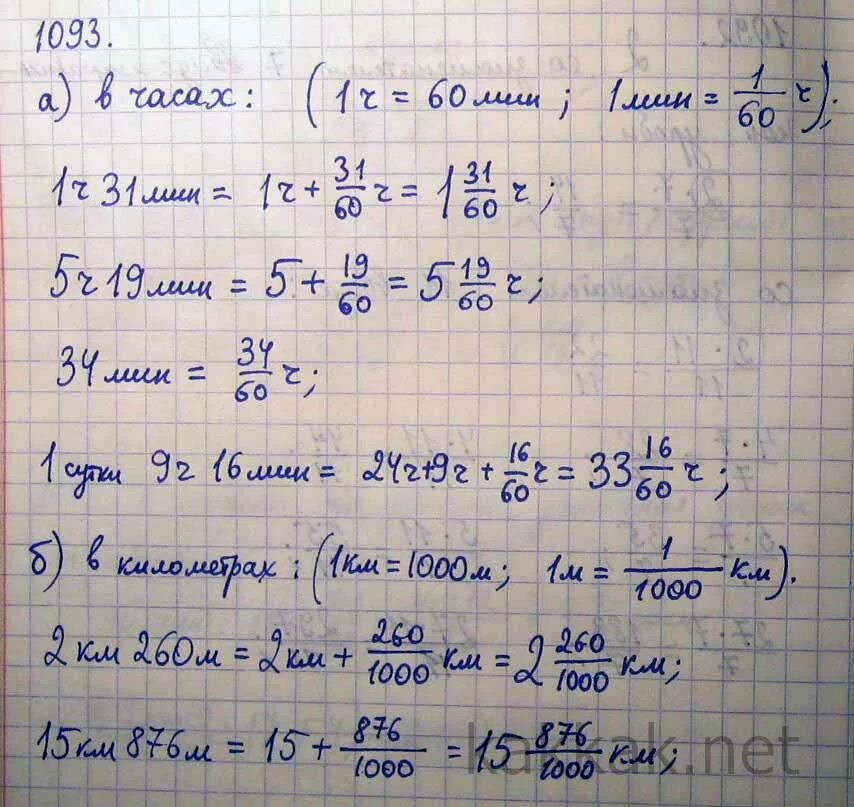 1093.
а) в часах: (1ч = 60мин; 1мин = 1/60 ч);
1ч 31мин = 1ч + 31/60 ч = 1 31/60 ч;
5ч 19мин = 5 + 19/60 = 5 19/60 ч;
34мин = 34/60 ч;
1 сутки 9ч 16мин = 24ч+9ч + 16/60 ч = 33 16/60 ч;
б) в километрах: (1км = 1000м; 1м = 1/1000 км).
2км 260м = 2км + 260/1000 км = 2 260/1000 км;
15км 876м = 15 + 876/1000 = 15 876/1000 км;